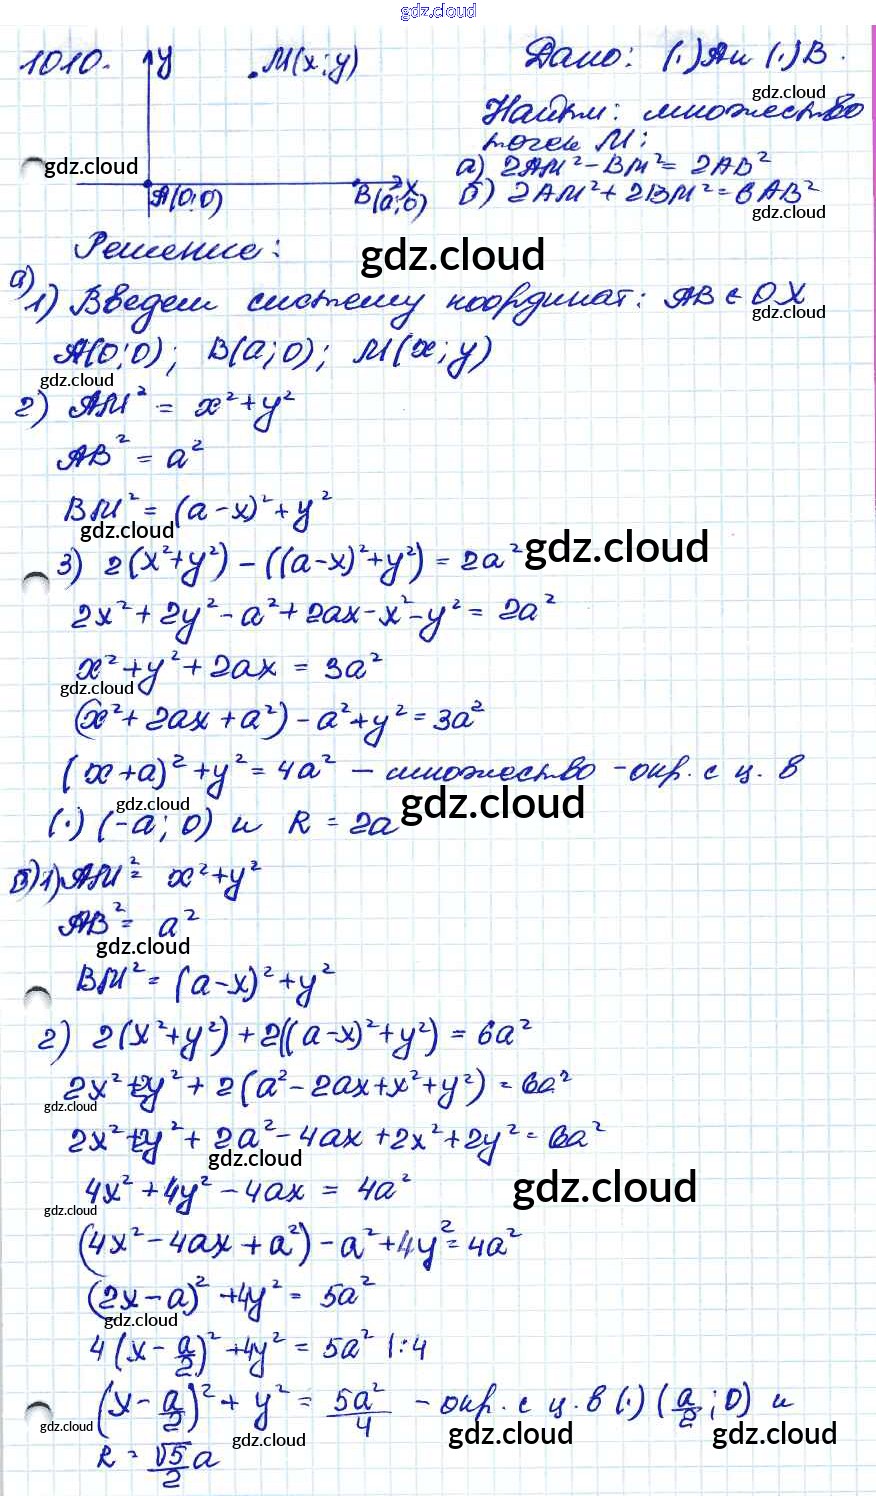 gdz.cloud
1010. y .M(x;y) Дано: (.)A и (.)B.
gdz.cloud
Найти: множество
точек M:
gdz.cloud
а) 2AM²-BM²=2AB²
A(0;0) B(a;0) x б) 2AM²+2BM²=6AB²
gdz.cloud
Решение:
gdz.cloud
а)
1) Введем систему координат: AB ∈ OX
gdz.cloud
A(0;0); B(a;0); M(x;y)
gdz.cloud
2) AM² = x²+y²
AB² = a²
BM² = (a-x)²+y²
gdz.cloud
3) 2(x²+y²) - ((a-x)²+y²) = 2a² gdz.cloud
2x²+2y²-a²+2ax-x²-y² = 2a²
x²+y²+2ax = 3a²
gdz.cloud
(x²+2ax+a²)-a²+y²=3a²
(x+a)²+y²=4a² - множество -окр. с ц. в
gdz.cloud gdz.cloud
(.) (-a; 0) и R = 2a
б) 1) AM² = x²+y²
AB² = a²
gdz.cloud
BM² = (a-x)²+y²
2) 2(x²+y²)+2((a-x)²+y²) = 6a²
2x²+2y²+2(a²-2ax+x²+y²) = 6a²
gdz.cloud
2x²+2y²+2a²-4ax+2x²+2y²=6a²
gdz.cloud
4x²+4y²-4ax = 4a² gdz.cloud
gdz.cloud
(4x²-4ax+a²)-a²+4y²=4a²
(2x-a)²+4y² = 5a²
gdz.cloud
4(x-a/2)²+4y² = 5a² |:4
(x-a/2)²+y² = 5a²/4 - окр. с ц. в (.) (a/2; 0) и
gdz.cloud gdz.cloud gdz.cloud gdz.cloud
R = √5/2 a